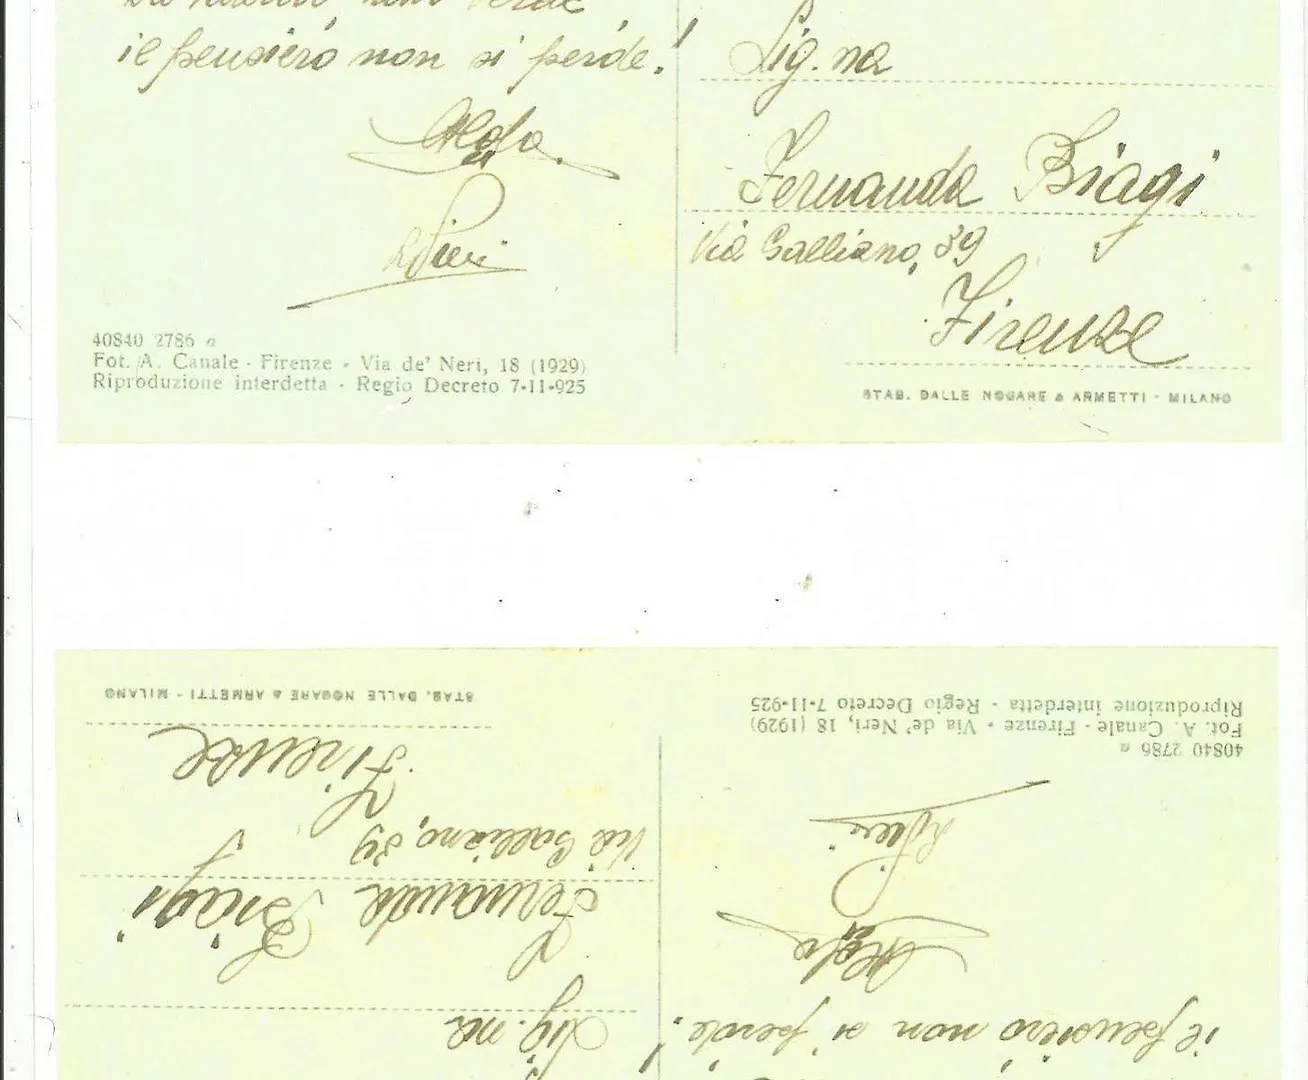 il pensiero non si perde!
Alda
Pieri
40840 2786 a
Fot. A. Canale - Firenze - Via de' Neri, 18 (1929)
Riproduzione interdetta - Regio Decreto 7-11-925
Sig.na
Fernanda Biagi
Via Galliano, 39
Firenze
STAB. DALLE NOGARE & ARMETTI - MILANO
STAB. DALLE NOGARE & ARMETTI - MILANO
Firenze
Via Galliano, 39
Fernanda Biagi
Sig.na
Riproduzione interdetta - Regio Decreto 7-11-925
Fot. A. Canale - Firenze - Via de' Neri, 18 (1929)
40840 2786 a
Pieri
Alda
il pensiero non si perde!